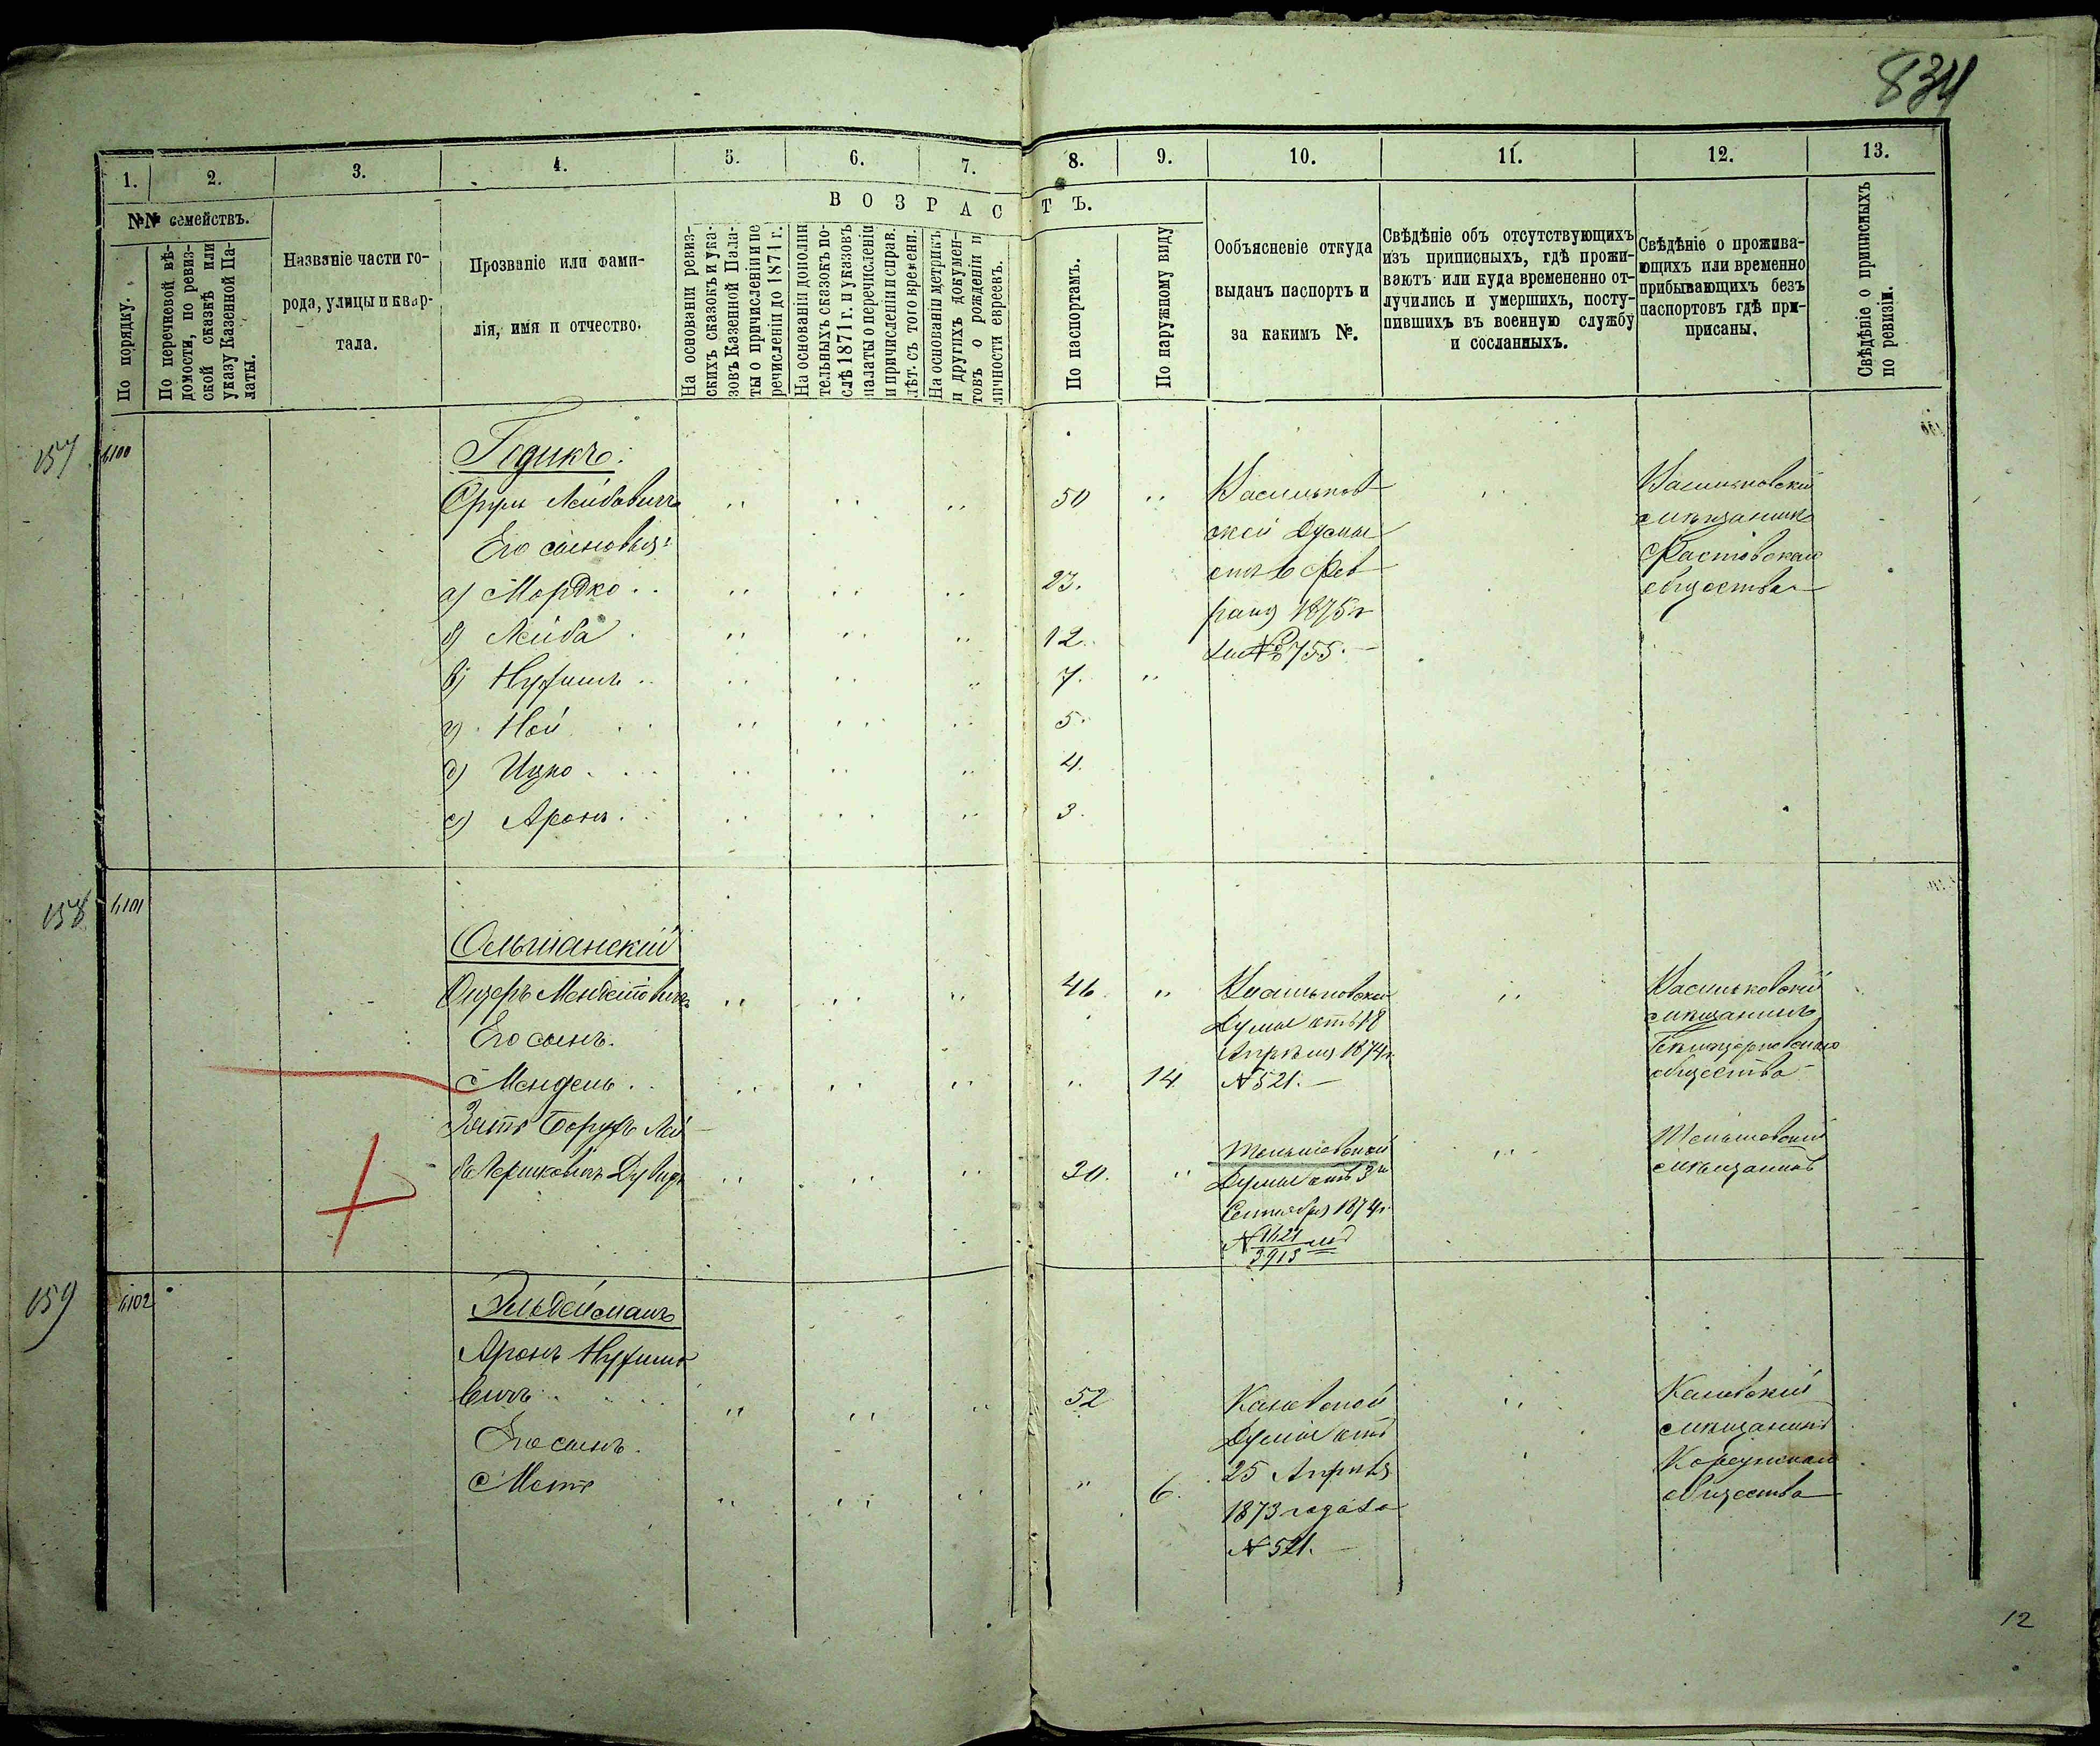 834
1. 2. 3. 4. 5. 6. 7. 8. 9. 10. 11. 12. 13.
№№ семействъ.
По порядку.
По перечневой вѣ-
домости, по ревиз-
ской сказкѣ или
указу Казенной Па-
латы.
Названіе части го-
рода, улицы и квар-
тала.
Прозваніе или фами-
лія, имя и отчество.
ВОЗРАСТЪ.
На основаніи ревиз-
скихъ сказокъ и ука-
зовъ Казенной Пала-
ты о причисленіи и пе
речисленіи до 1871 г.
На основаніи дополни
тельныхъ сказокъ по-
слѣ 1871 г. и указовъ
палаты о перечисленіи
и причисленіи и справ.
лѣт. съ того времени.
На основаніи метрикъ
и другихъ докумен-
товъ о рожденіи и
личности евреевъ.
По паспортамъ.
По наружному виду
Ообъясненіе откуда
выданъ паспортъ и
за какимъ №.
Свѣдѣніе объ отсутствующихъ
изъ приписныхъ, гдѣ прожи-
ваютъ или куда времененно от-
лучились и умершихъ, посту-
пившихъ въ военную службу
и сосланныхъ.
Свѣдѣніе о прожива-
ющихъ или временно
прибывающихъ безъ
паспортовъ гдѣ при-
присаны.
Свѣдѣніе о приписныхъ
по ревизіи.
157 6100
Годикъ
Сруль Лейбовичъ 50
Его сыновья:
а) Мордко 23.
б) Лейба 12.
в) Нухимъ 7.
г) Ной 5.
д) Ицко 4.
е) Аронъ 3.
Васильков-
ской Думы
отъ 6 Фев-
раля 1875 г
за № 755.
Васильковскій
мѣщанинъ
Фастовскаго
общества
158 6101
Ольшанскій
Ошеръ Менделевичъ 46
Его сынъ.
Мендель 14
Зять Борухъ Лей-
ба Гершковичъ 30.
Васильковской
Думы отъ 18
Апрѣля 1874 г.
№ 521.
Думы отъ 3го
Сентября 1874 г.
№ 1621
3913
Васильковскій
мѣщанинъ
общества
мѣщанинъ
159 6102
Эльдейманъ
Аронъ Нухимо
вичъ 52
Его сынъ.
Мотя 6.
Каневской
Думы отъ
25 Апрѣля
1873 года за
№ 521.
Каневскій
мѣщанинъ
Корсунскаго
общества
12